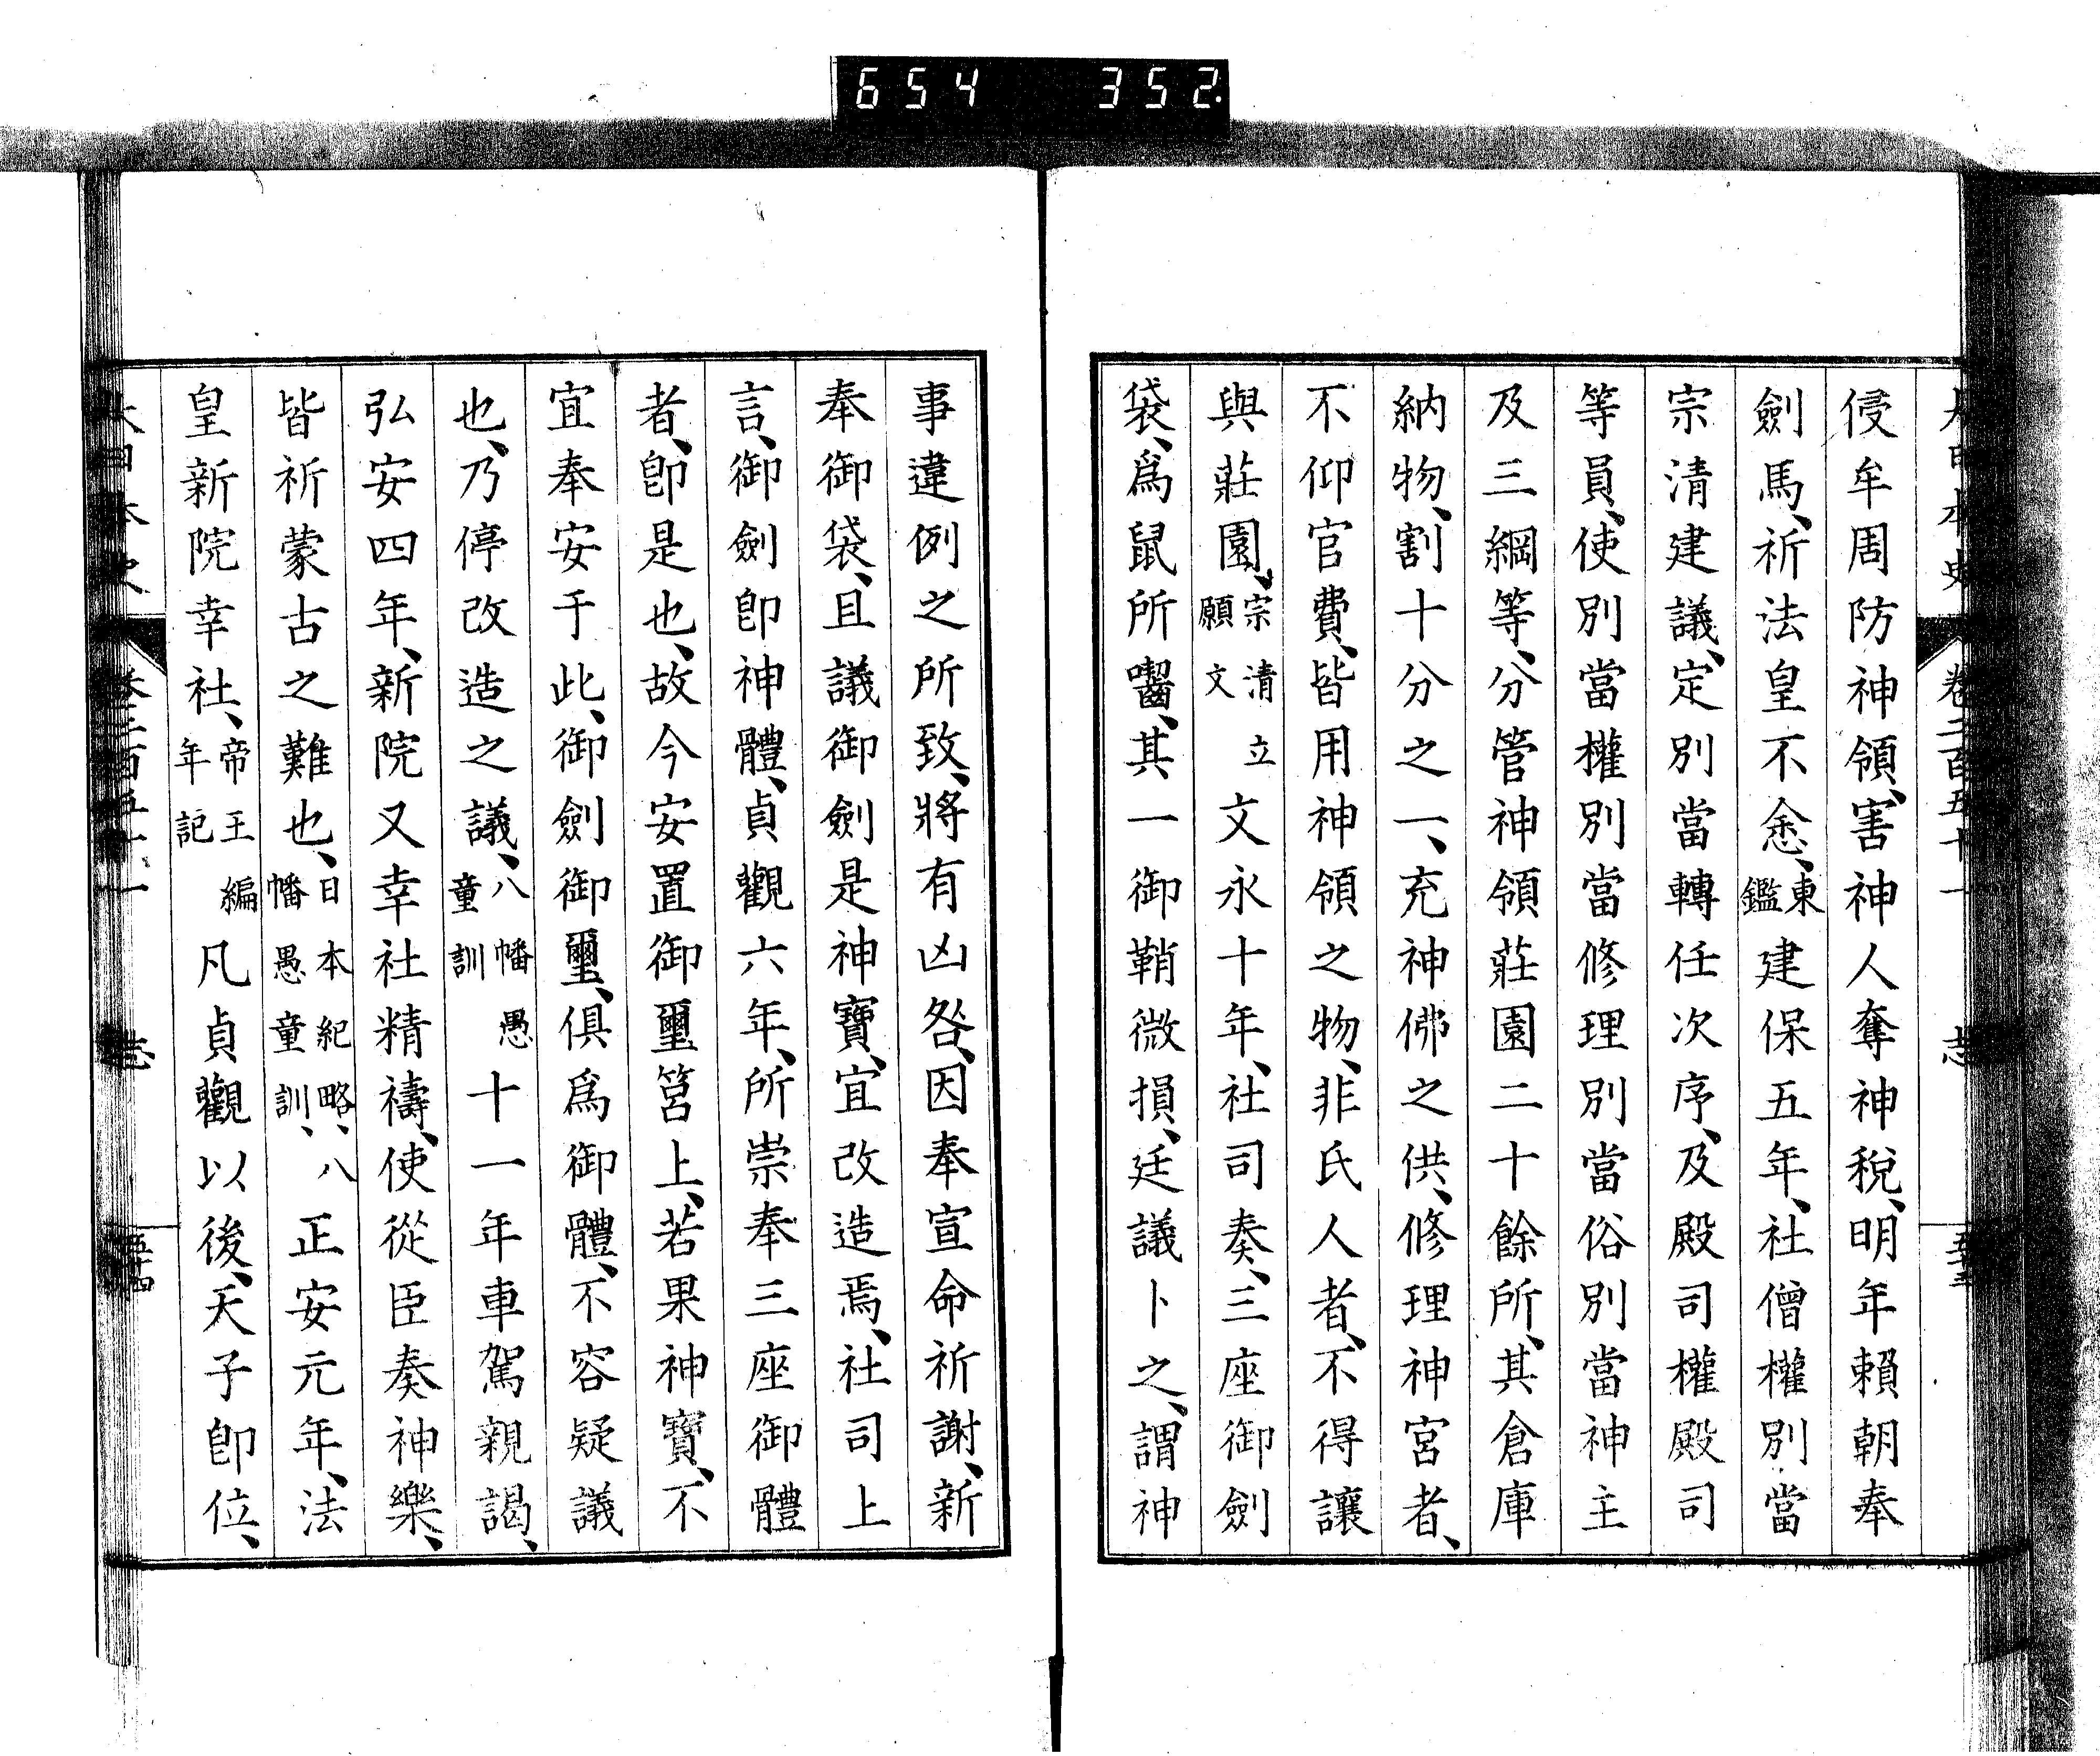 654 352
大日本史 卷二百五十一 志 五十三
侵牟周防神領、害神人奪神稅、明年賴朝奉
劍馬、祈法皇不悆、東鑑建保五年、社僧權別當
宗清建議、定別當轉任次序、及殿司權殿司
等員、使別當權別當修理別當俗別當神主
及三綱等、分管神領莊園二十餘所、其倉庫
納物、割十分之一、充神佛之供、修理神宮者、
不仰官費、皆用神領之物、非氏人者、不得讓
與莊園、宗清立願文文永十年、社司奏、三座御劍
袋、爲鼠所嚙、其一御鞘微損、廷議卜之、謂神
事違例之所致、將有凶咎、因奉宣命祈謝、新
奉御袋、且議御劍是神寶、宜改造焉、社司上
言、御劍卽神體、貞觀六年、所崇奉三座御體
者、卽是也、故今安置御璽筥上、若果神寶、不
宜奉安于此、御劍御璽、俱爲御體、不容疑議
也、乃停改造之議、八幡愚童訓十一年車駕親謁、
弘安四年、新院又幸社精禱、使從臣奏神樂、
皆祈蒙古之難也、日本紀略、八幡愚童訓、正安元年、法
皇新院幸社、帝王編年記凡貞觀以後、天子卽位、
大日本史 卷二百五十一 志 五十四